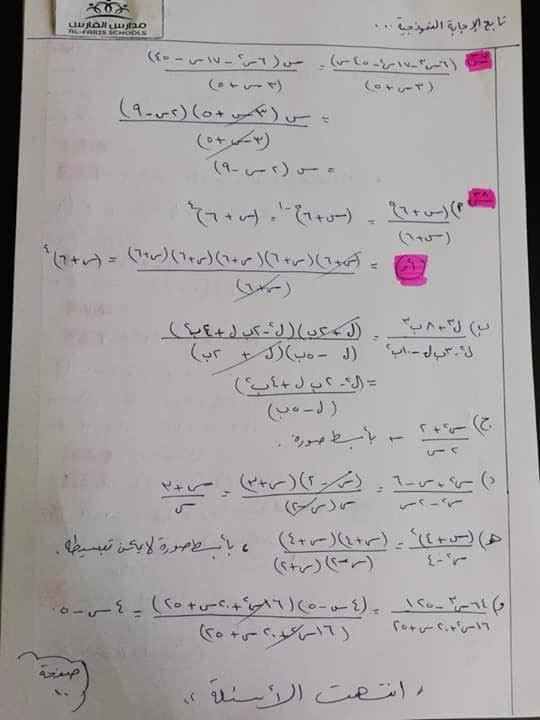 مدارس الفارس
AL-FARIS SCHOOLS
تابع الإجابة النموذجية ...
س٣٧ (٦س٣ - ١٧س٢ - ٤٥س) / (٣س + ٥) = س(٦س٢ - ١٧س - ٤٥) / (٣س + ٥)
= س(٣س + ٥)(٢س - ٩) / (٣س + ٥)
= س(٢س - ٩)
س٣٨
٢) (س + ٦)٥ / (س + ٦) = (س + ٦)٥-١ = (س + ٦)٤
أو = (س+٦)(س+٦)(س+٦)(س+٦)(س+٦) / (س+٦) = (س+٦)٤
ب) ل٣ + ٨ب٣ / ل٢ - ٣ب ل - ١٠ب٢ = (ل + ٢ب)(ل٢ - ٢ب ل + ٤ب٢) / (ل - ٥ب)(ل + ٢ب)
= (ل٢ - ٢ب ل + ٤ب٢) / (ل - ٥ب)
ج) س٢ + ٢ / ٢س ← بأبسط صورة.
د) س٢ + س - ٦ / س٢ - ٢س = (س - ٢)(س + ٣) / س(س - ٢) = س + ٣ / س
هـ) (س + ٤)٢ / س٢ - ٤ = (س + ٤)(س + ٤) / (س - ٢)(س + ٢) ، بأبسط صورة لا يمكن تبسيطه.
و) ٦٤س٣ - ١٢٥ / ١٦س٢ + ٢٠س + ٢٥ = (٤س - ٥)(١٦س٢ + ٢٠س + ٢٥) / (١٦س٢ + ٢٠س + ٢٥) = ٤س - ٥
، انتهت الأسئلة ،،
صفحة
١٠